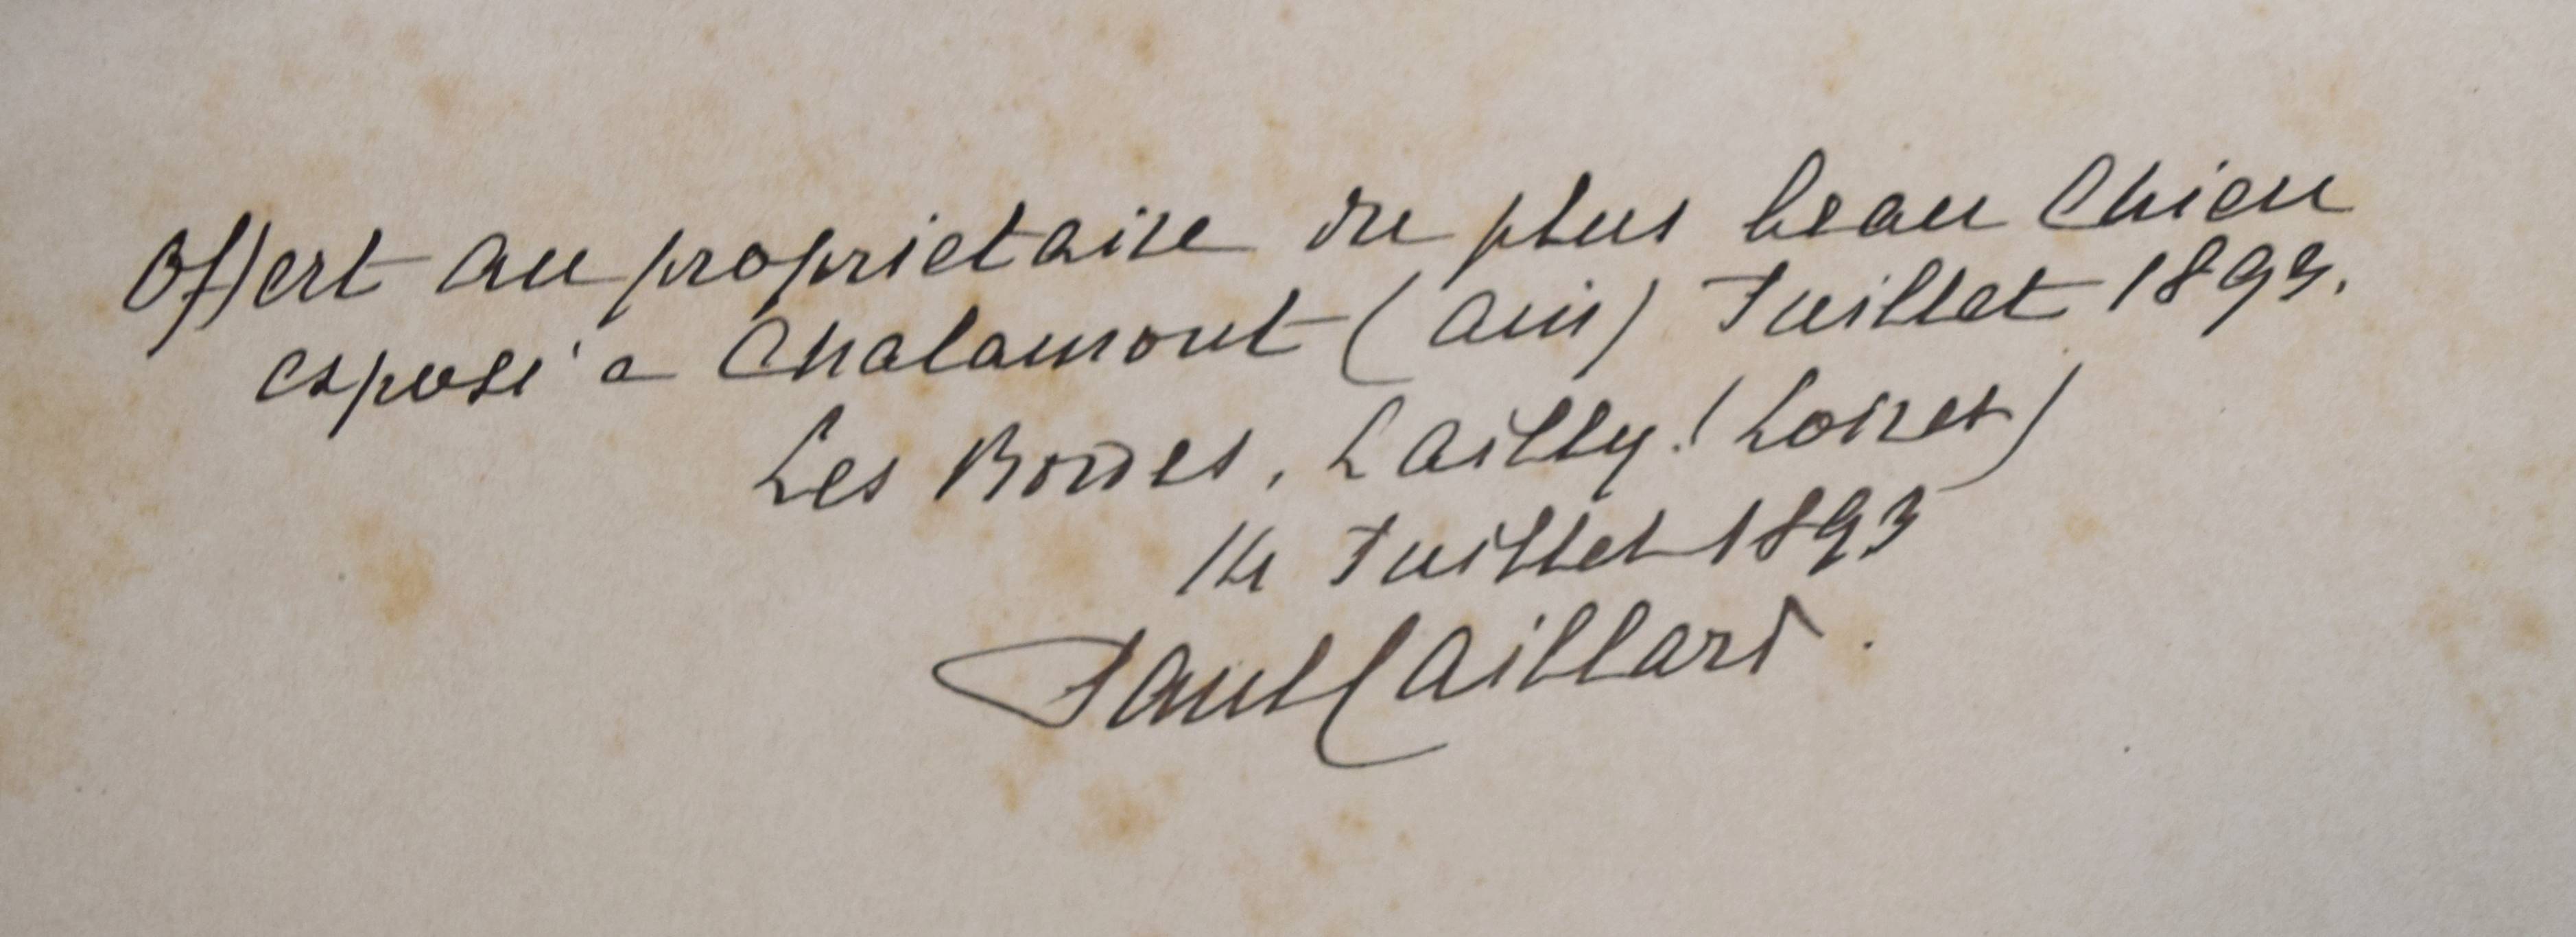 Offert au proprietaire du plus beau Chien
exposé a Chalamont (Ain) Juillet 1893.
Les Bordes, Lailly (Loiret)
14 Juillet 1893
Paul Caillard.